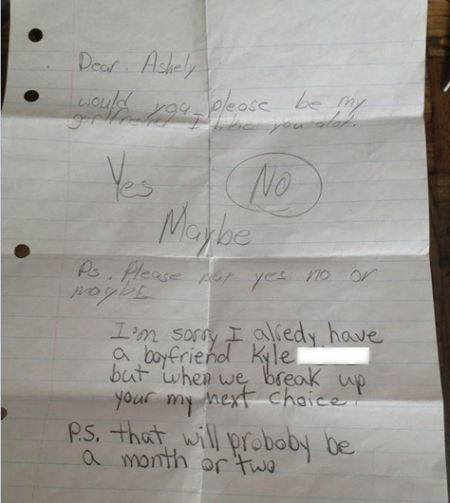 Dear. Ashely
would you please be my
girlfriend I like you alot.
Yes
NO
Maybe
Ps. Please put yes no or
maybe
I'm sorry I alredy have
a boyfriend Kyle
but when we break up
your my next choice.
P.S. that will proboby be
a month or two